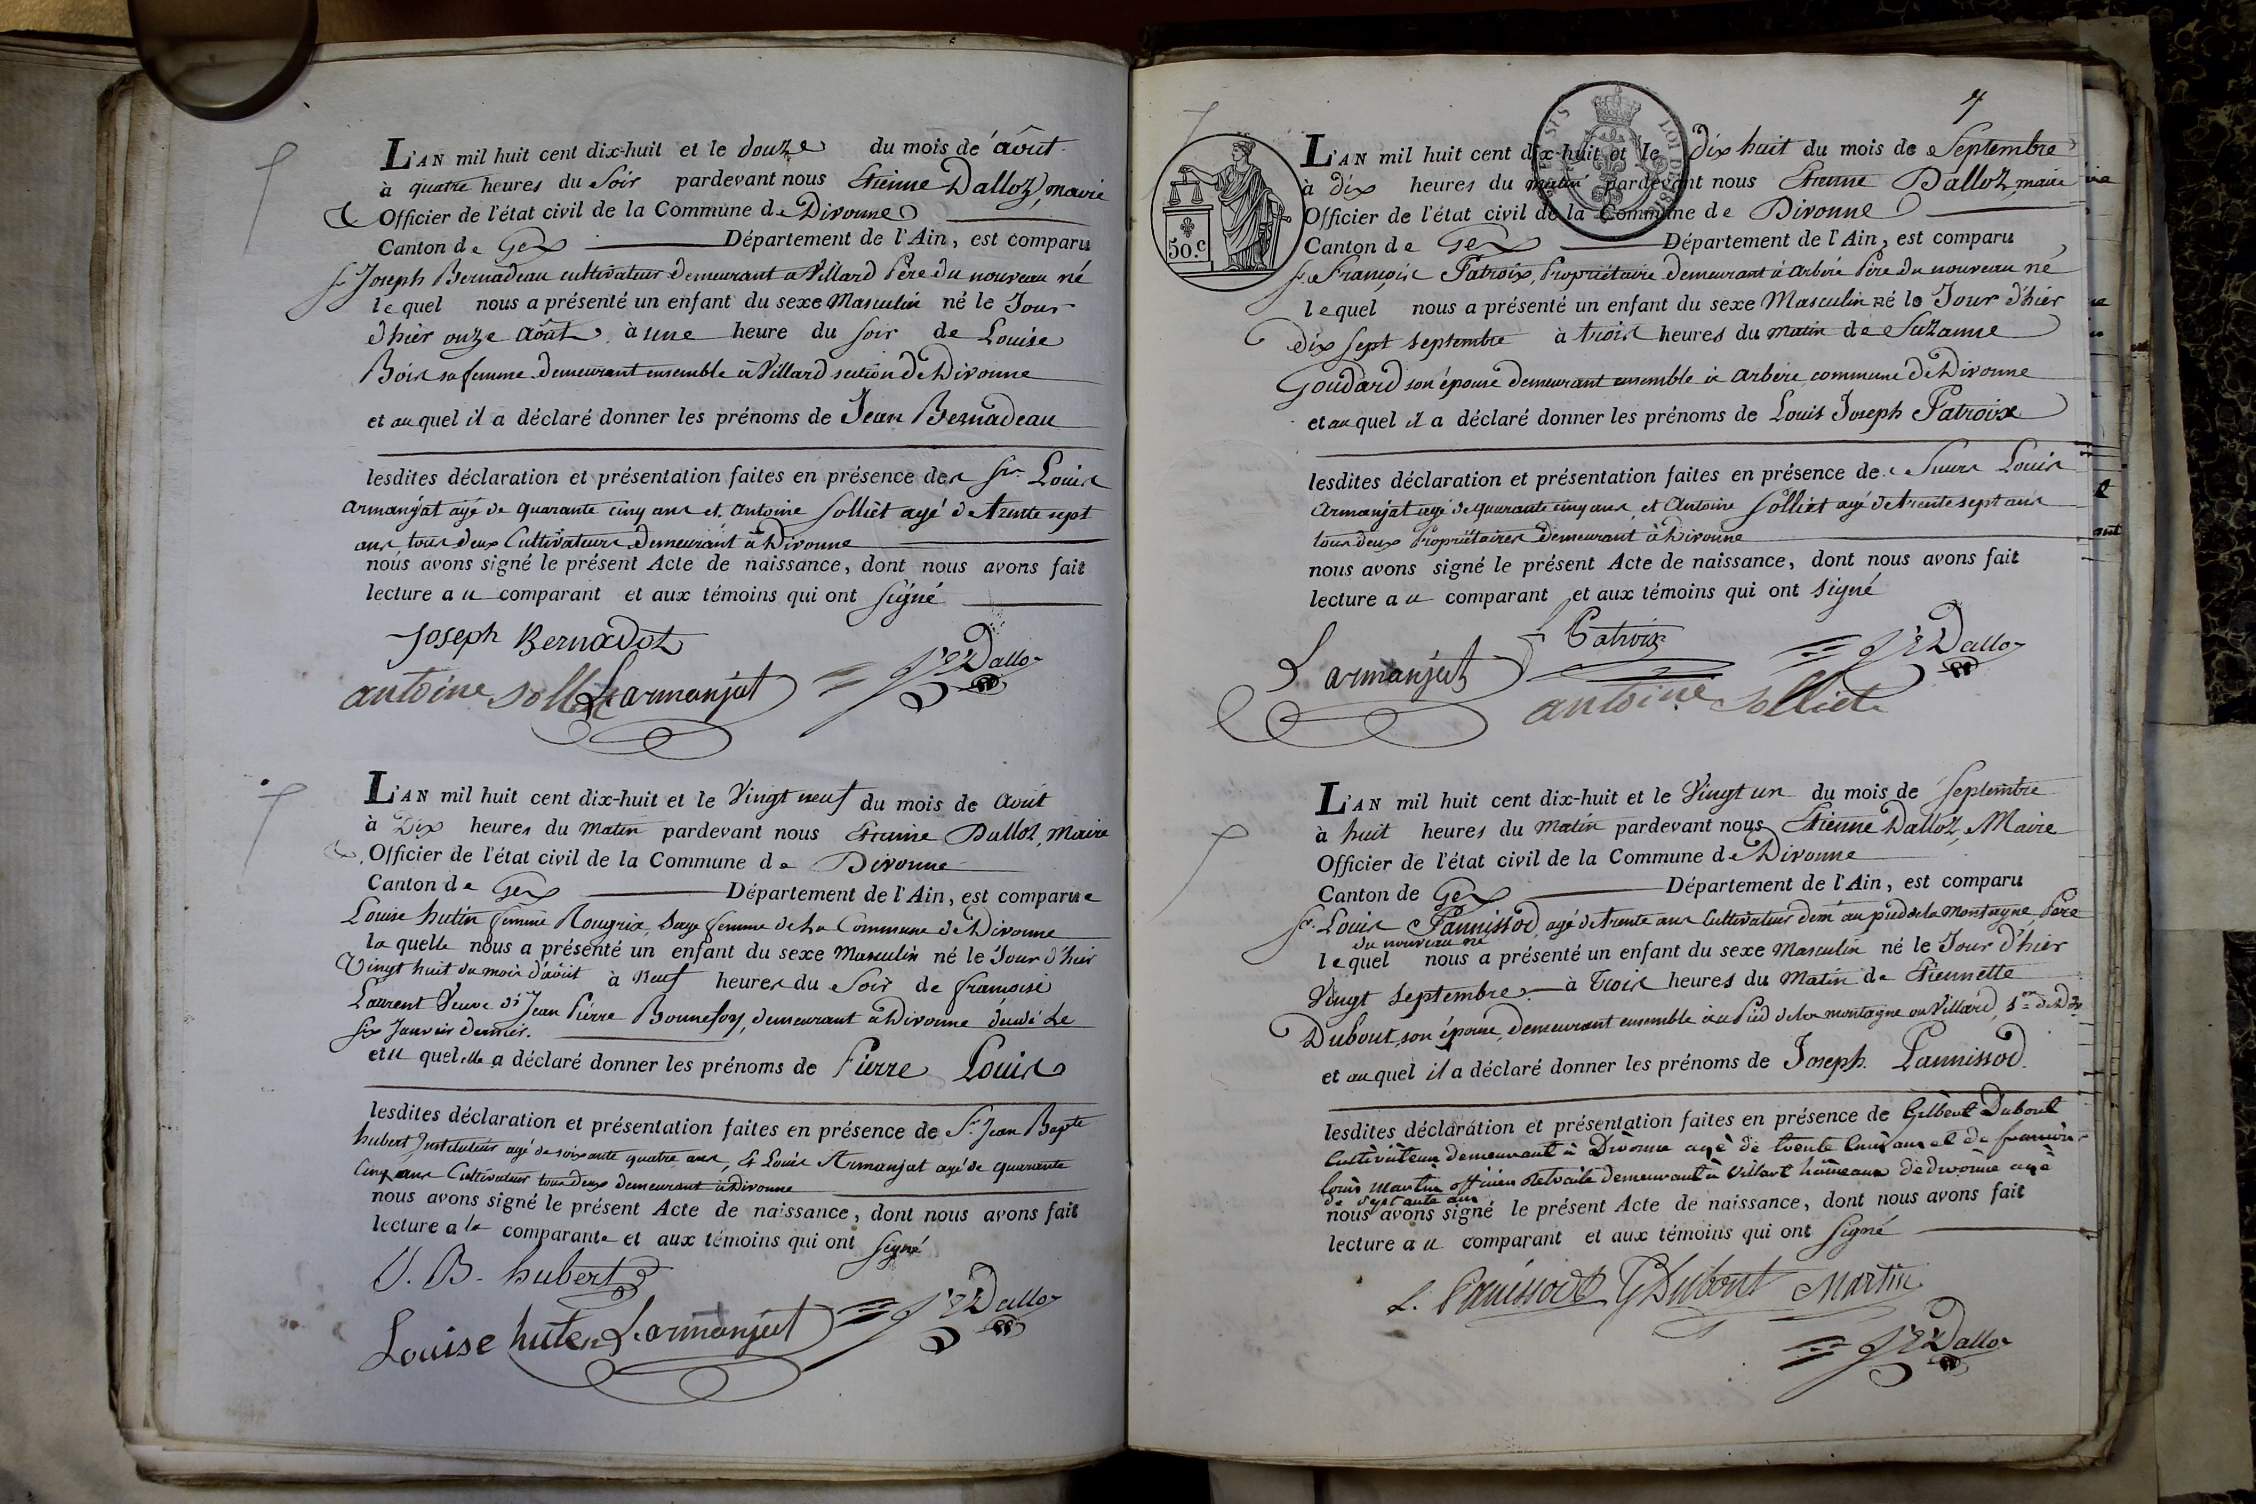 L'AN mil huit cent dix-huit et le douze du mois de août
à quatre heures du Soir pardevant nous Etienne Dalloz, maire
Officier de l'état civil de la Commune de Divonne
Canton de Gex Département de l'Ain, est comparu
Sr. Joseph Bernadeau cultivateur demeurant a Villard Père du nouveau né
lequel nous a présenté un enfant du sexe Masculin né le Jour
d'hier onze Août à une heure du Soir de Louise
Bois sa femme demeurant ensemble à Villard section de Divonne
et auquel il a déclaré donner les prénoms de Jean Bernadeau
lesdites déclaration et présentation faites en présence des Srs Louis
Armanjat agé de quarante cinq ans et Antoine Solliet agé de trente sept
ans, tous deux Cultivateurs demeurant à Divonne
nous avons signé le présent Acte de naissance, dont nous avons fait
lecture au comparant et aux témoins qui ont Signé
Joseph Bernadot
antoine Solliet L armanjat Dalloz
L'AN mil huit cent dix-huit et le Vingt neuf du mois de Août
à Dix heures du Matin pardevant nous Etienne Dalloz, Maire
Officier de l'état civil de la Commune de Divonne
Canton de Gex Département de l'Ain, est comparue
Louise hutin femme Rougrix, Sage femme de la Commune de Divonne
laquelle nous a présenté un enfant du sexe Masculin né le Jour d'hier
Vingt huit du mois d'août à Neuf heures du Soir de françoise
Laurent Veuve de Jean Pierre Bonnefoy, demeurant à Divonne décédé le
Six Janvier dernier.
et u quel elle a déclaré donner les prénoms de Pierre Louis
lesdites déclaration et présentation faites en présence de Sr. Jean Bapte
hubert Instituteur agé de soixante quatre ans, et Louis Armanjat agé de quarante
Cinq ans Cultivateur tous deux demeurant à Divonne
nous avons signé le présent Acte de naissance, dont nous avons fait
lecture a la comparante et aux témoins qui ont Signé
J. B. hubert
Louise huten L. armanjat Dalloz
4
50.c
LOI DE
L'AN mil huit cent dix-huit et le Dix huit du mois de Septembre
à Dix heures du matin pardevant nous Etienne Dalloz, maire
Officier de l'état civil de la Commune de Divonne
Canton de Gex Département de l'Ain, est comparu
Sr. François Patroix, Propriétaire demeurant à Arbère Père du nouveau né
lequel nous a présenté un enfant du sexe Masculin né le Jour d'hier
Dix Sept Septembre à trois heures du matin de Suzanne
Goudard son épouse demeurant ensemble à Arbère commune de Divonne
et auquel il a déclaré donner les prénoms de Louis Joseph Patroix
lesdites déclaration et présentation faites en présence de Sieurs Louis
Armanjat agé de quarante cinq ans, et Antoine Solliet agé de trente sept ans
tous deux Propriétaires demeurant à Divonne
nous avons signé le présent Acte de naissance, dont nous avons fait
lecture au comparant et aux témoins qui ont Signé
Patroix
L armanjat Dalloz
antoine Solliet
L'AN mil huit cent dix-huit et le Vingt un du mois de Septembre
à huit heures du Matin pardevant nous Etienne Dalloz, Maire
Officier de l'état civil de la Commune de Divonne
Canton de Gex Département de l'Ain, est comparu
Sr. Louis Pannissod, agé de trente ans Cultivateur dem.t au pied de la Montagne, Père
du nouveau né
lequel nous a présenté un enfant du sexe Masculin né le Jour d'hier
Vingt Septembre à trois heures du Matin de Etiennette
Dubout, son épouse, demeurant ensemble au Pied de la montagne ou Villard, s.on de Div
et auquel il a déclaré donner les prénoms de Joseph Pannissod.
lesdites déclaration et présentation faites en présence de Gilbert Dubout
Cultivateur demeurant à Divonne agé de trente cinq ans et de françois
Louis Martin officier Retraité demeurant à Villart hameaux de divonne agé
de septante ans
nous avons signé le présent Acte de naissance, dont nous avons fait
lecture au comparant et aux témoins qui ont Signé
L. Panissod G Dubout Martin
Dalloz